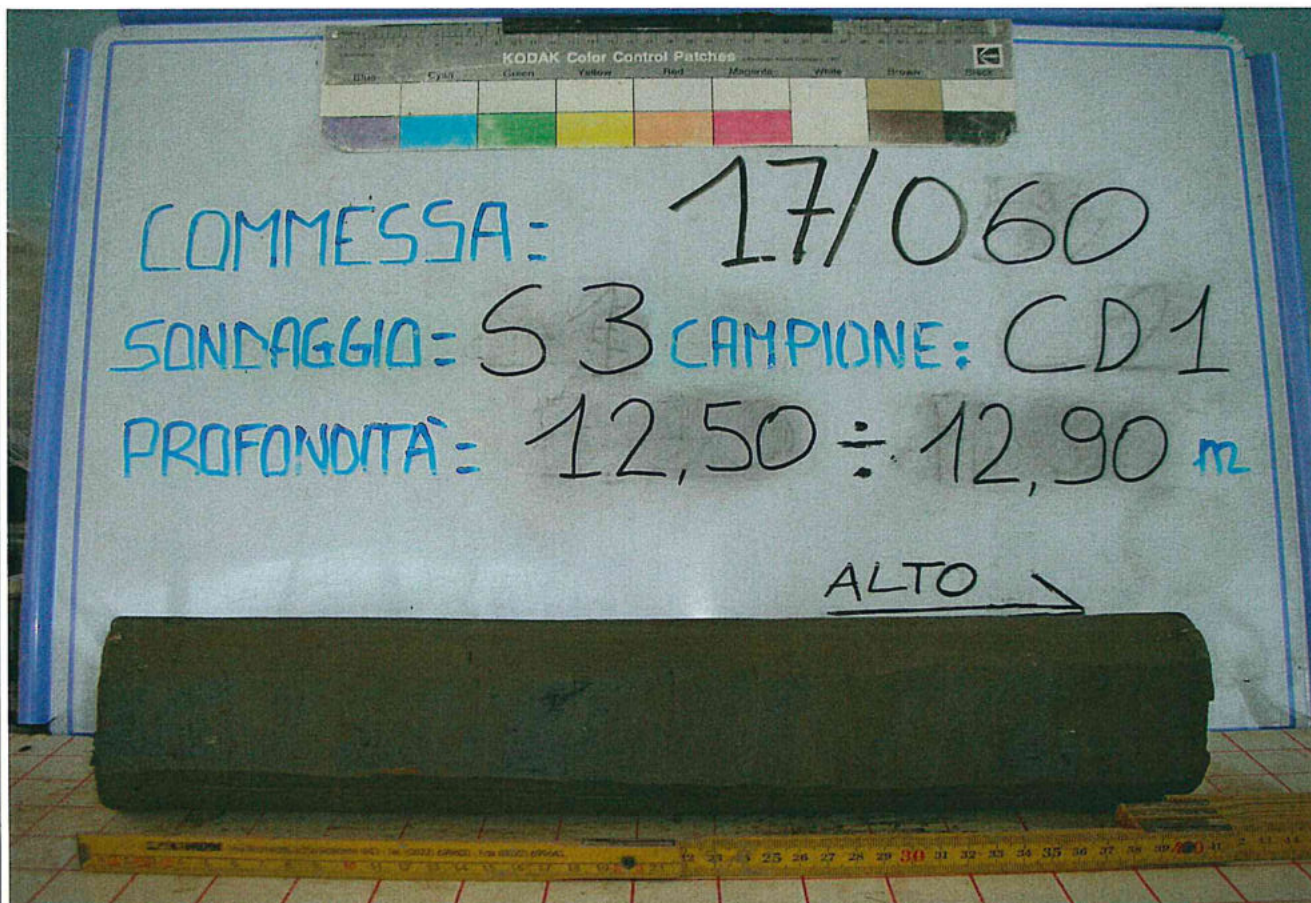 KODAK Color Control Patches
Blue Cyan Green Yellow Red Magenta White Brown Black
COMMESSA= 17/060
SONDAGGIO= S3 CAMPIONE: CD1
PROFONDITÀ= 12,50 ÷ 12,90 m
ALTO
25 26 27 28 29 30 31 32 33 34 35 36 37 38